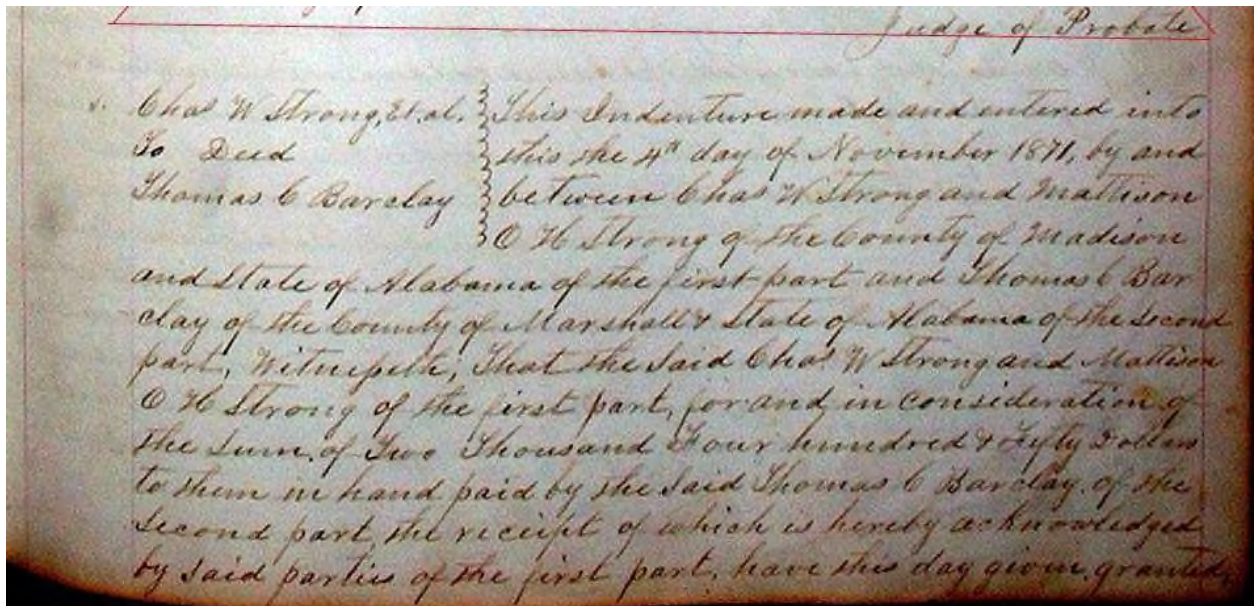 Judge of Probate
s. Chas W Strong, Et. al.
To Deed
Thomas C Barclay
This Indenture made and entered into
this the 4th day of November 1871, by and
between Chas W Strong and Mattison
O H Strong of the County of Madison
and State of Alabama of the first part and Thomas C Bar
clay of the County of Marshall & State of Alabama of the Second
part, Witnesseth, That the Said Chas W Strong and Mattison
O H Strong of the first part, for and in consideration of
the Sum of Two Thousand Four hundred & Fifty Dollars
to them in hand paid by the Said Thomas C Barclay of the
Second part the receipt of which is hereby acknowledged
by Said parties of the first part, have this day given, granted,